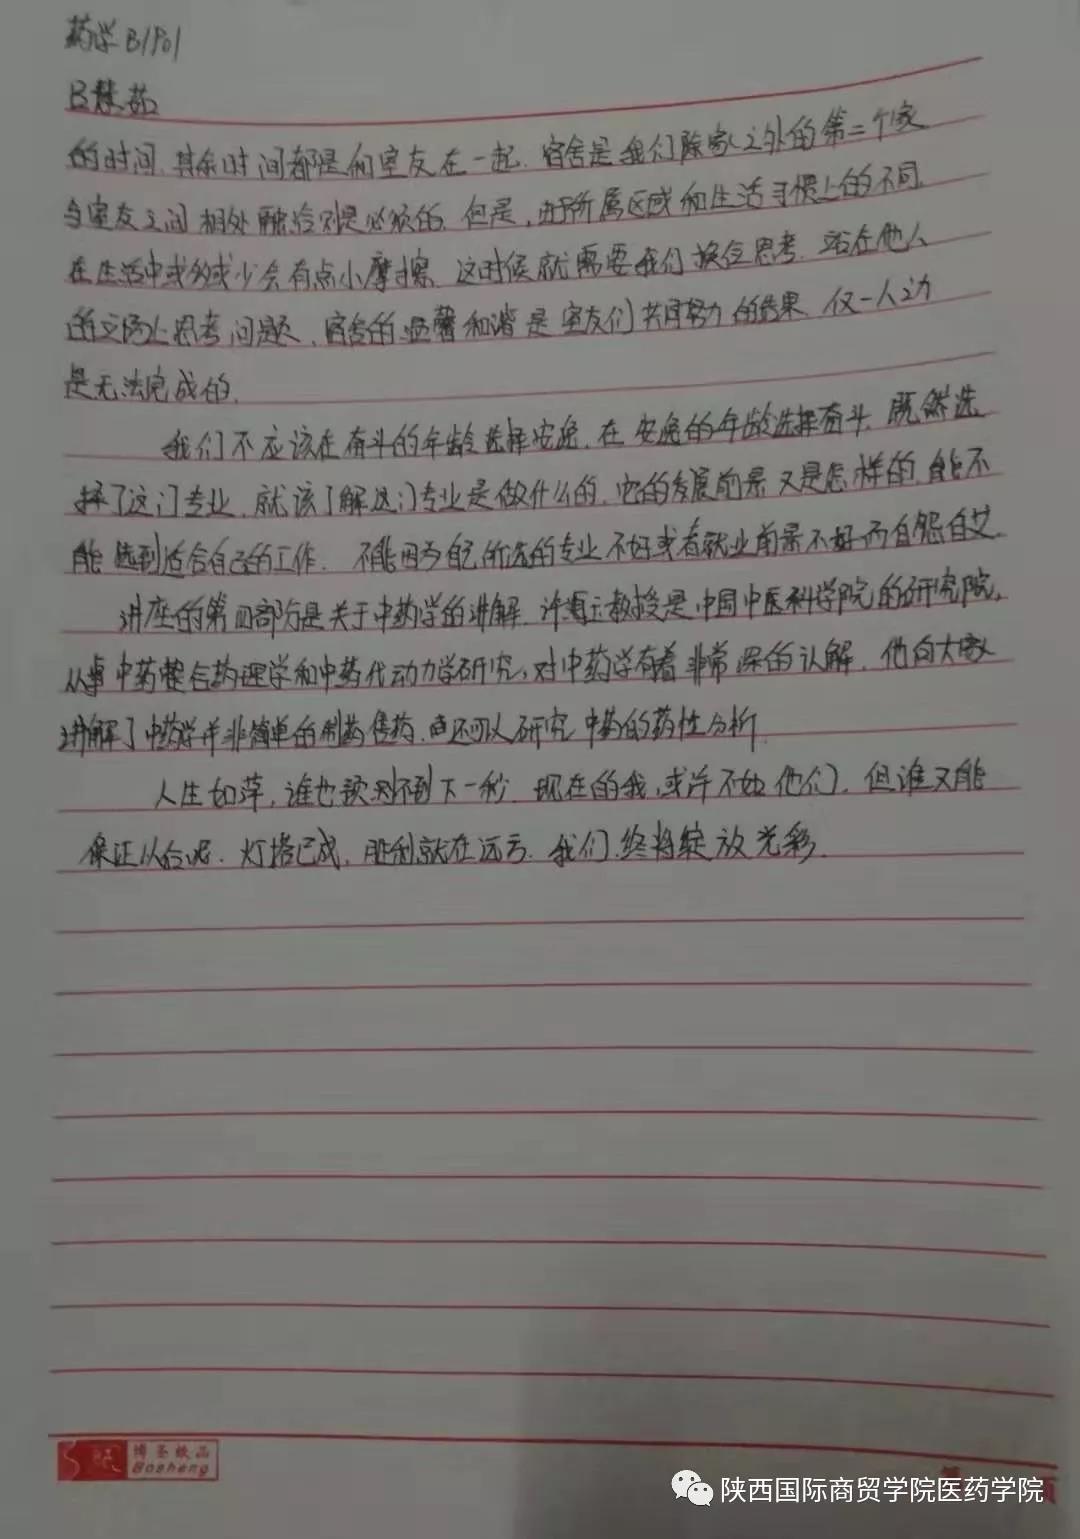 药学B1901
吕慧茹
的时间,其余时间都是和室友在一起.宿舍是我们除家之外的第二个家
与室友之间相处融洽则是必须的.但是,由于所属区域和生活习惯上的不同
在生活中或多或少会有点小摩擦.这时候就需要我们换位思考.站在他人
的立场上思考问题.宿舍的温馨和谐是室友们共同努力的结果.仅一人之功
是无法完成的.
我们不应该在奋斗的年龄选择安逸,在安逸的年龄选择奋斗.既然选
择了这门专业,就该了解这门专业是做什么的,它的发展前景又是怎样的,能不
能选到适合自己的工作.不能因为自己所选的专业不好或者就业前景不好而自怨自艾.
讲座的第四部分是关于中药学的讲解.许教授是中国中医科学院的研究院,
从事中药整合药理学和中药代动力学研究,对中药学有着非常深的认解.他向大家
讲解了中药学并非简单的制药售药.还可以研究中药的药性分析.
人生如萍,谁也预测不到下一秒.现在的我,或许不如他们.但谁又能
保证以后呢.灯塔已成,胜利就在远方.我们终将绽放光彩.
博圣纸品
Bosheng
陕西国际商贸学院医药学院